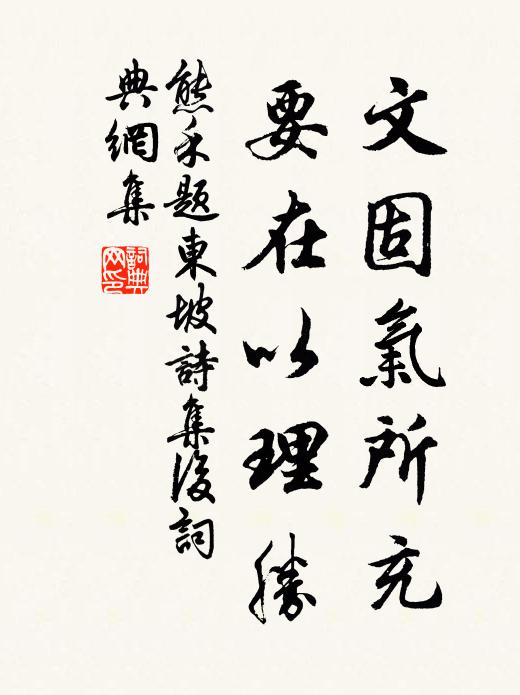 文固氣所充
要在以理勝
熊禾題東坡詩集後詞
典網集
詞典網印